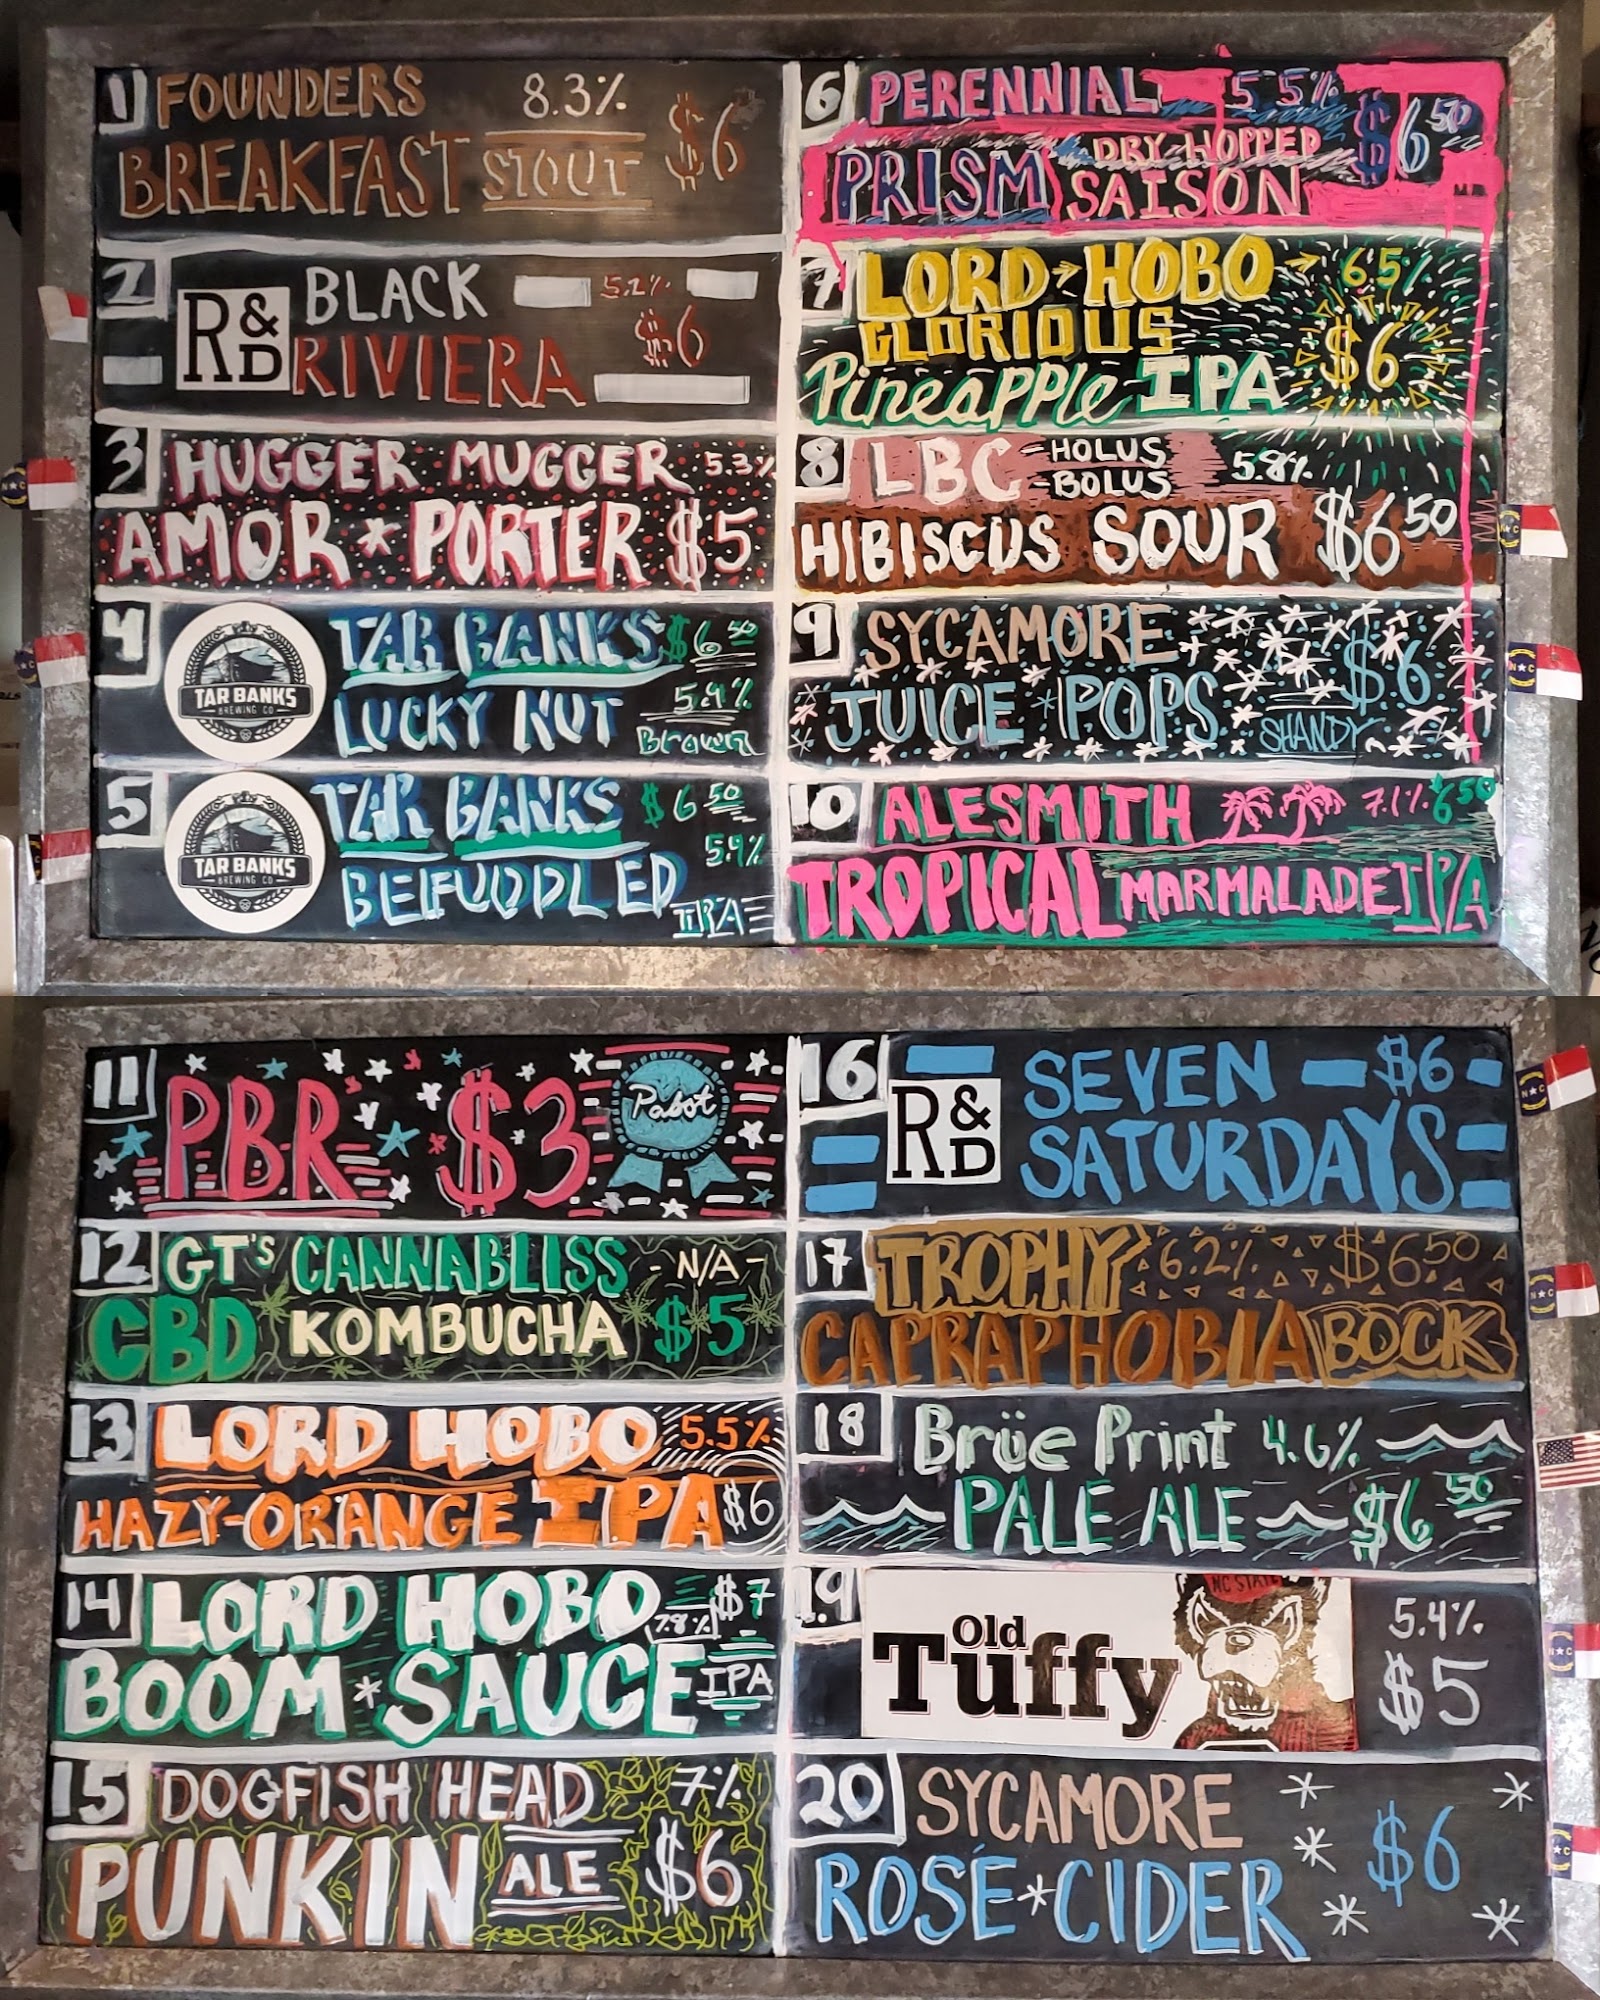 1 FOUNDERS 8.3% $6
BREAKFAST STOUT
2 R&D BLACK 5.2% $6
RIVIERA
3 HUGGER MUGGER 5.3%
AMOR * PORTER $5
4 TAR BANKS BREWING CO TAR BANKS $6.50
LUCKY NUT 5.9% Brown
5 TAR BANKS BREWING CO TAR BANKS $6.50
5.9%
BEFUDDLED IPA
6 PERENNIAL 5.5% $6.50
PRISM DRY-HOPPED
SAISON
7 LORD HOBO 6.5%
GLORIOUS $6
Pineapple IPA
8 LBC -HOLUS 5.8%
-BOLUS
HIBISCUS SOUR $6.50
9 SYCAMORE $6
JUICE POPS SHANDY
10 ALESMITH 7.1% $6.50
TROPICAL MARMALADE IPA
11 PBR $3 Pabst
12 GT's CANNABLISS - N/A -
CBD KOMBUCHA $5
13 LORD HOBO 5.5%
HAZY-ORANGE IPA $6
14 LORD HOBO 7.8% $7
BOOM * SAUCE IPA
15 DOGFISH HEAD 7%
PUNKIN ALE $6
16 R&D SEVEN $6
SATURDAYS
17 TROPHY 6.2% $6.50
CAPRAPHOBIA BOCK
18 Brüe Print 4.6%
PALE ALE $6.50
19 Old Tuffy NC STATE 5.4%
$5
20 SYCAMORE $6
ROSÉ * CIDER
N★C
N★C
N★C
N★C
N★C
N★C
N★C
N★C